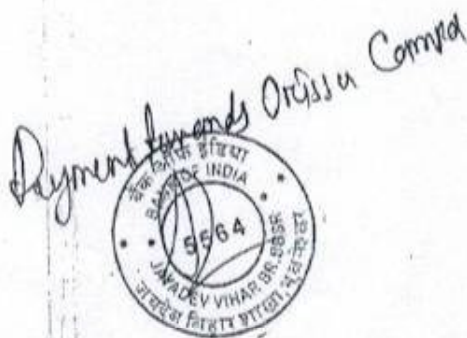 Payment towards Orissa Campa
बैंक ऑफ इंडिया
BANK OF INDIA
5564
JAYADEV VIHAR BR. BBSR
जयदेव विहार शाखा, भुवनेश्वर